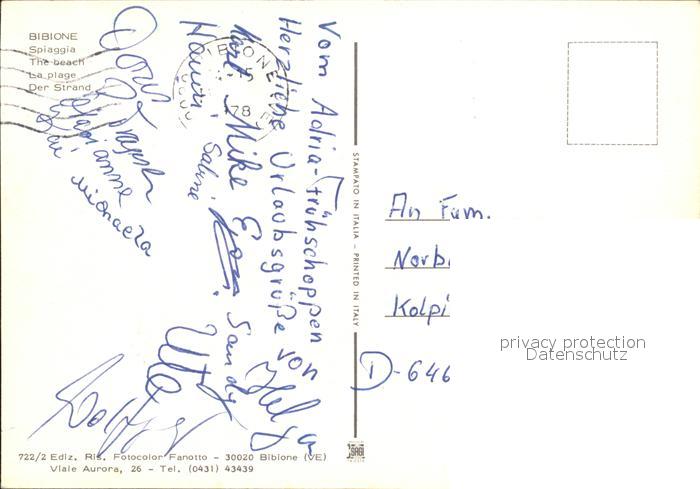 BIBIONE
Spiaggia
The beach
La plage
Der Strand
BIBIONE
78
Vom Adria-Frühschoppen
Herzliche Urlaubsgrüße von Helga
Mike Sandy
Sabine
Uta
Marianne
Kai Michaela
STAMPATO IN ITALIA - PRINTED IN ITALY
An Fam.
Norb
Kolpi
D-646
privacy protection
Datenschutz
722/2 Ediz. Ris. Fotocolor Fanotto - 30020 Bibione (VE)
Viale Aurora, 26 - Tel. (0431) 43439